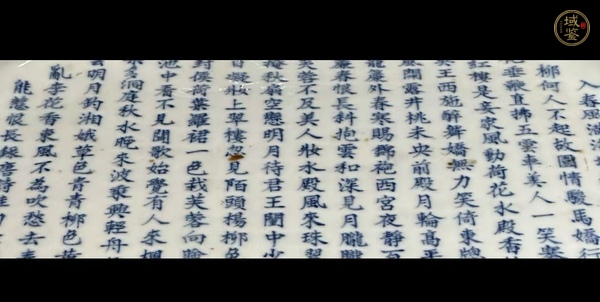 入春風
柳何人不起故園情駿馬嬌行
垂鞭直拂五雲車美人一笑褰
紅樓是妾家風動荷花水殿香
王西施醉舞嬌無力笑倚東牕
開露井桃未央前殿月輪高平
簾外春寒賜錦袍西宮夜靜百
簾春恨長斜抱雲和深見月朧朧
芙蓉不及美人妝水殿風來珠翠
掩秋扇空懸明月待君王閨中少
日凝妝上翠樓忽見陌頭楊柳色
封侯荷葉羅裙一色裁芙蓉向臉
池中看不見聞歌始覺有人來楓
多洞庭秋水晚來波乘興輕舟
去明月釣湘娥草色青青柳色黃
亂李花香東風不為吹愁去春
能惹恨長
域鉴